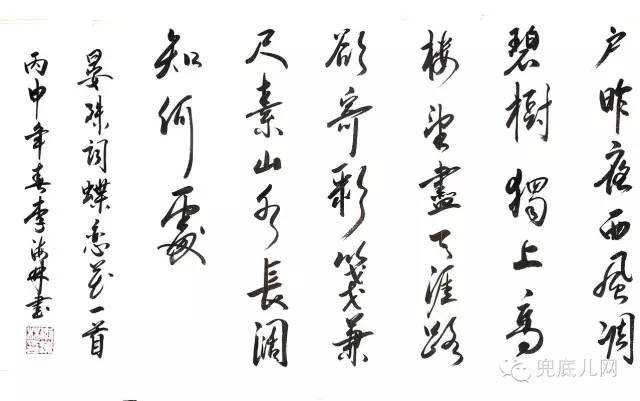 户昨夜西風凋
碧樹獨上高
樓望盡天涯路
欲寄彩箋兼
尺素山水長闊
知何處
晏殊词蝶恋花一首
丙申年春李海林书
兜底儿网